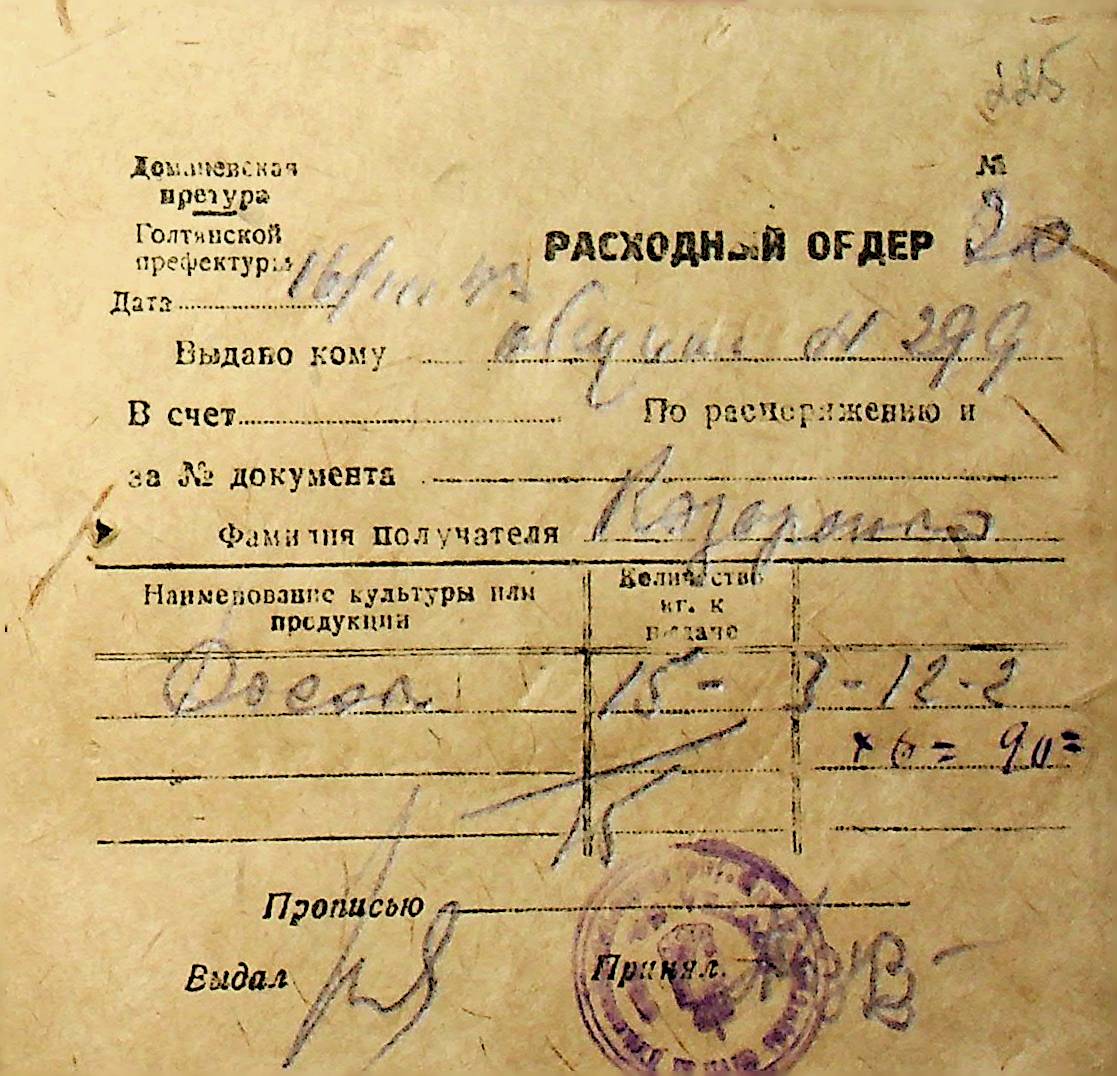 225
Доманевская
претура
Голтянской
префектуры
№
20
РАСХОДНЫЙ ОРДЕР
Дата 16/III 43
Выдано кому общине N 299
В счет По распоряжению и
за № документа
Фамилия получателя
Наименование культуры или
продукции
Количество
кг. к
выдаче
15 - 3-12-2
×6= 90=
15
Прописью
Выдал
Принял